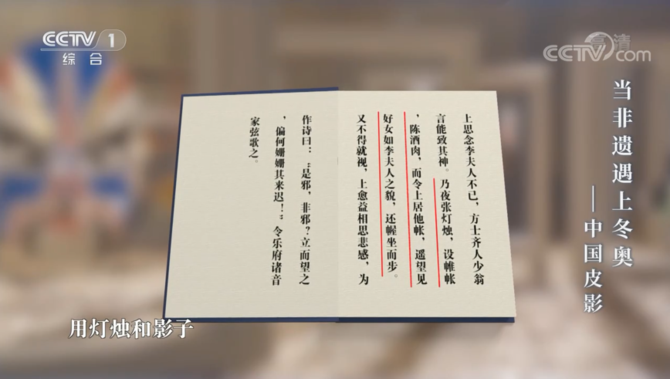 CCTV 1
综合
CCTV.com
高清
当非遗遇上冬奥
——中国皮影
上思念李夫人不已，方士齐人少翁
言能致其神。乃夜张灯烛，设帷帐
，陈酒肉，而令上居他帐，遥望见
好女如李夫人之貌，还幄坐而步。
又不得就视，上愈益相思悲感，为
作诗曰：“是邪，非邪？立而望之
，偏何姗姗其来迟！”令乐府诸音
家弦歌之。
用灯烛和影子